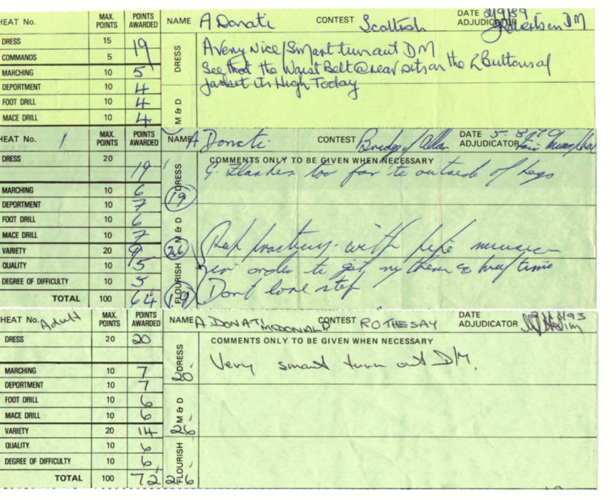 HEAT No. MAX. POINTS POINTS AWARDED NAME A Donati CONTEST Scottish DATE 2/9/89 ADJUDICATOR Robertson DM
DRESS 15 19 DRESS A very Nice/Smart turn out DM
COMMANDS 5 See that the Waist Belt @ rear sits on the 2 Buttons of
MARCHING 10 5 jacket its High Today
DEPORTMENT 10 4
FOOT DRILL 10 4 M & D
MACE DRILL 10 4
HEAT No. 1 MAX. POINTS POINTS AWARDED NAME A Donati CONTEST Bridge of Allan DATE ADJUDICATOR
DRESS 20 19 COMMENTS ONLY TO BE GIVEN WHEN NECESSARY
G. Flashes too far to outside of legs
MARCHING 10 6 DRESS 19
DEPORTMENT 10 7
FOOT DRILL 10 6 M & D
MACE DRILL 10 7
VARIETY 20 9 26 practising with pipe music
QUALITY 10 5 FLOURISH in order to get rythem & time
DEGREE OF DIFFICULTY 10 5 Dont lose step
TOTAL 100 64 19
HEAT No. Adult MAX. POINTS POINTS AWARDED NAME A DONATI McDONALD CONTEST ROTHESAY DATE ADJUDICATOR
DRESS 20 20 DRESS COMMENTS ONLY TO BE GIVEN WHEN NECESSARY
Very smart turn out D/M.
MARCHING 10 7 20
DEPORTMENT 10 7
FOOT DRILL 10 6 M & D
MACE DRILL 10 6
VARIETY 20 14 26
QUALITY 10 6 FLOURISH
DEGREE OF DIFFICULTY 10 6
TOTAL 100 72 26